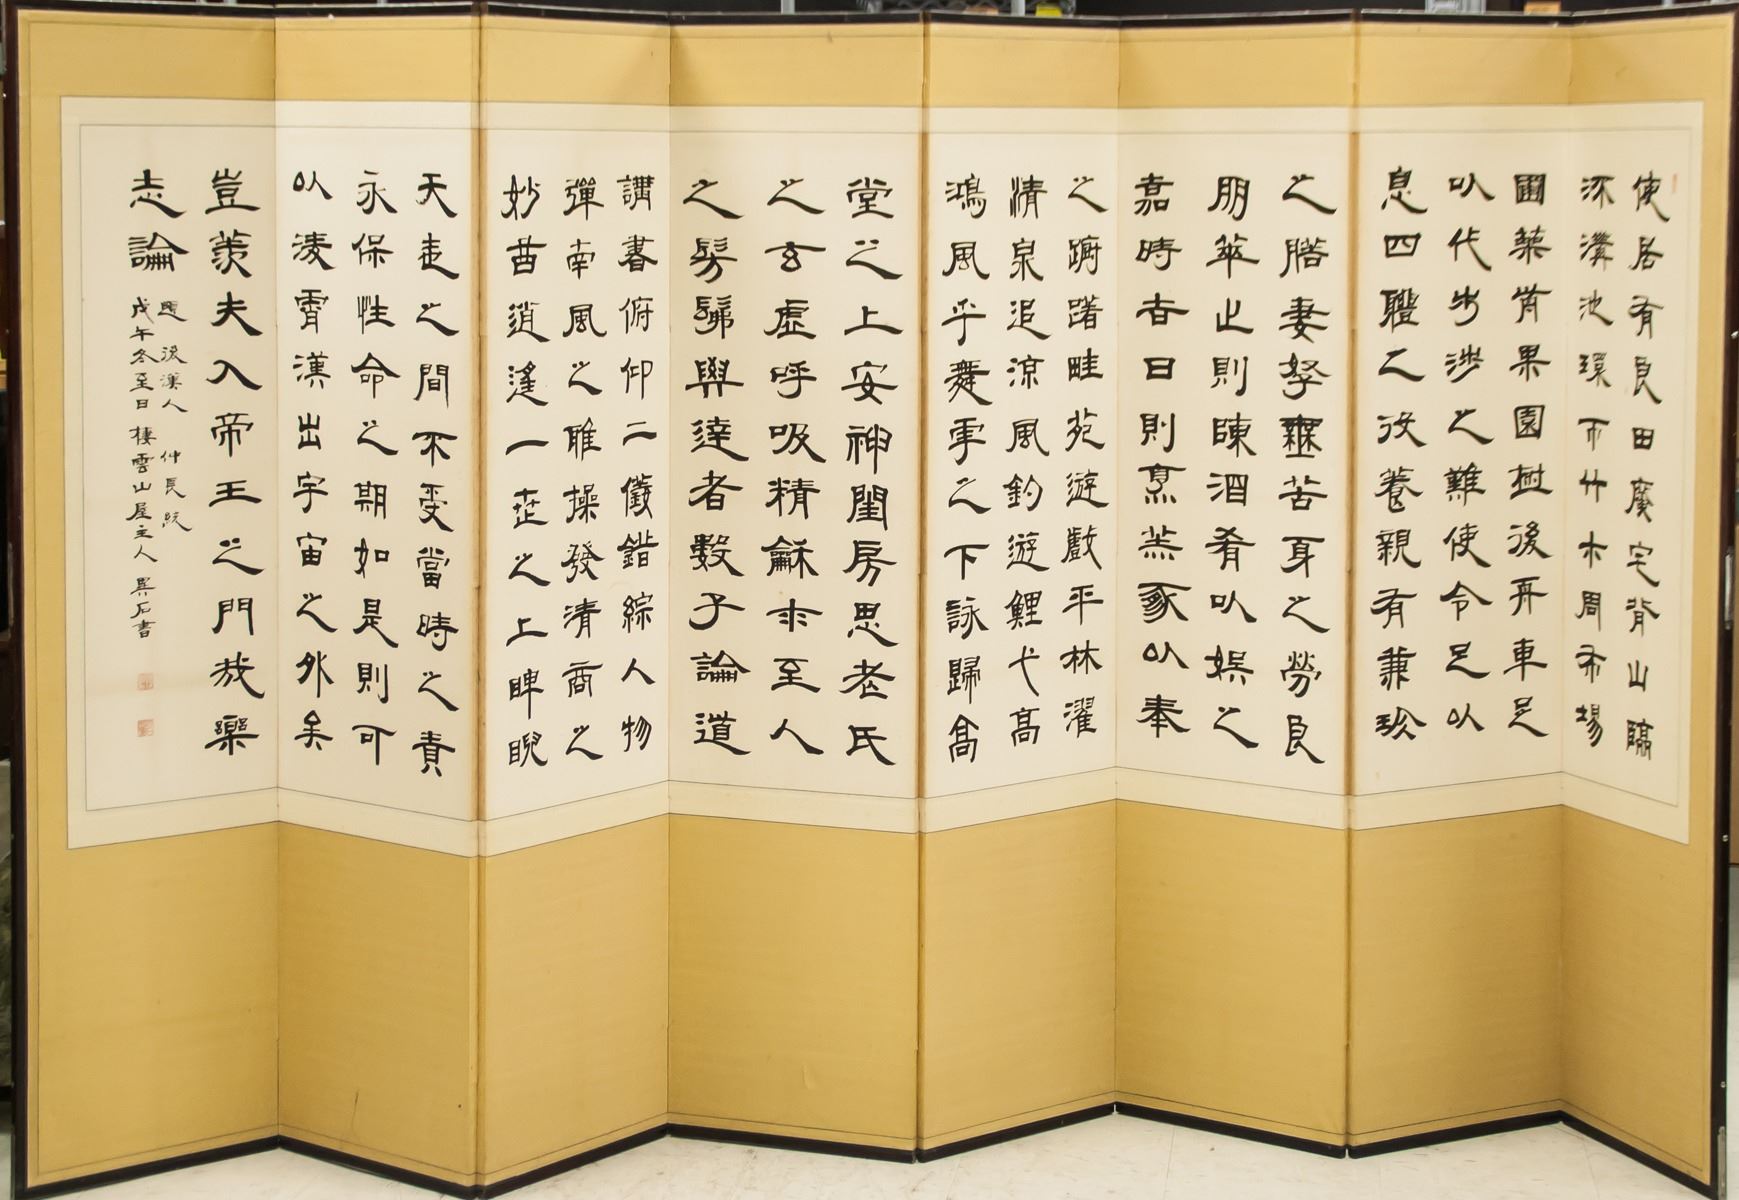 使居有良田廣宅背山臨
流溝池環帀竹木周布場
圃築前果園樹後舟車足
以代步涉之難使令足以
息四體之役養親有兼珍
之膳妻孥無苦身之勞良
朋萃止則陳酒肴以娛之
嘉時吉日則烹羔豚以奉
之躕躇畦苑遊戲平林濯
清泉追涼風釣遊鯉弋高
鴻風乎舞雩之下詠歸高
堂之上安神閨房思老氏
之玄虛呼吸精龢求至人
之髣髴與達者數子論道
講書俯仰二儀錯綜人物
彈南風之雅操發清商之
妙曲逍遙一世之上睥睨
天地之間不受當時之責
永保性命之期如是則可
以凌霄漢出宇宙之外矣
豈羨夫入帝王之門哉樂
志論
後漢人 仲長統
戊午冬至日 棲雲山屋主人 石書